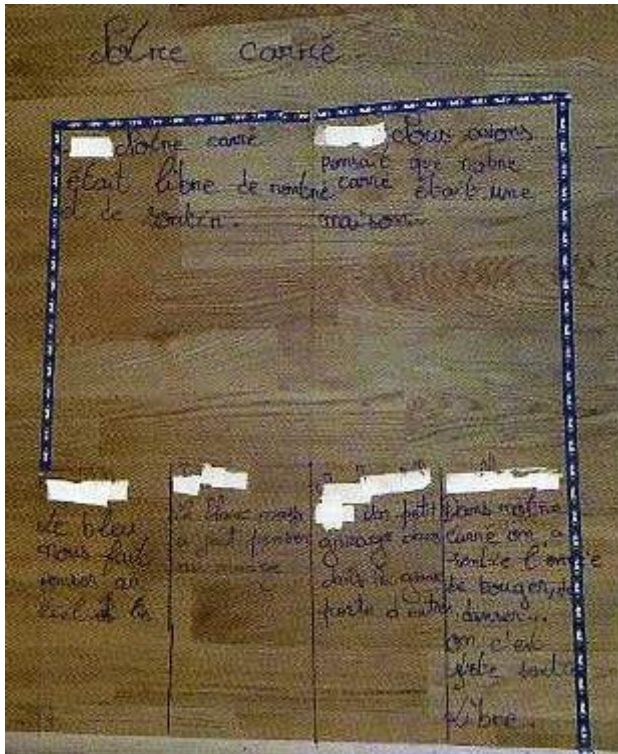 Notre carré
Notre carré
était libre de rentré
et de sortir.
Nous avions
pensait que notre
carré était une
maison.
Le bleu
nous fait
penser au
ciel et la
Le blanc nous
a fait penser
au nuage
Un petit
garage
dans la
porte d'entré
Dans notre
carré on a
l'envie
de bouger, de
danser...
on c'est
libre.